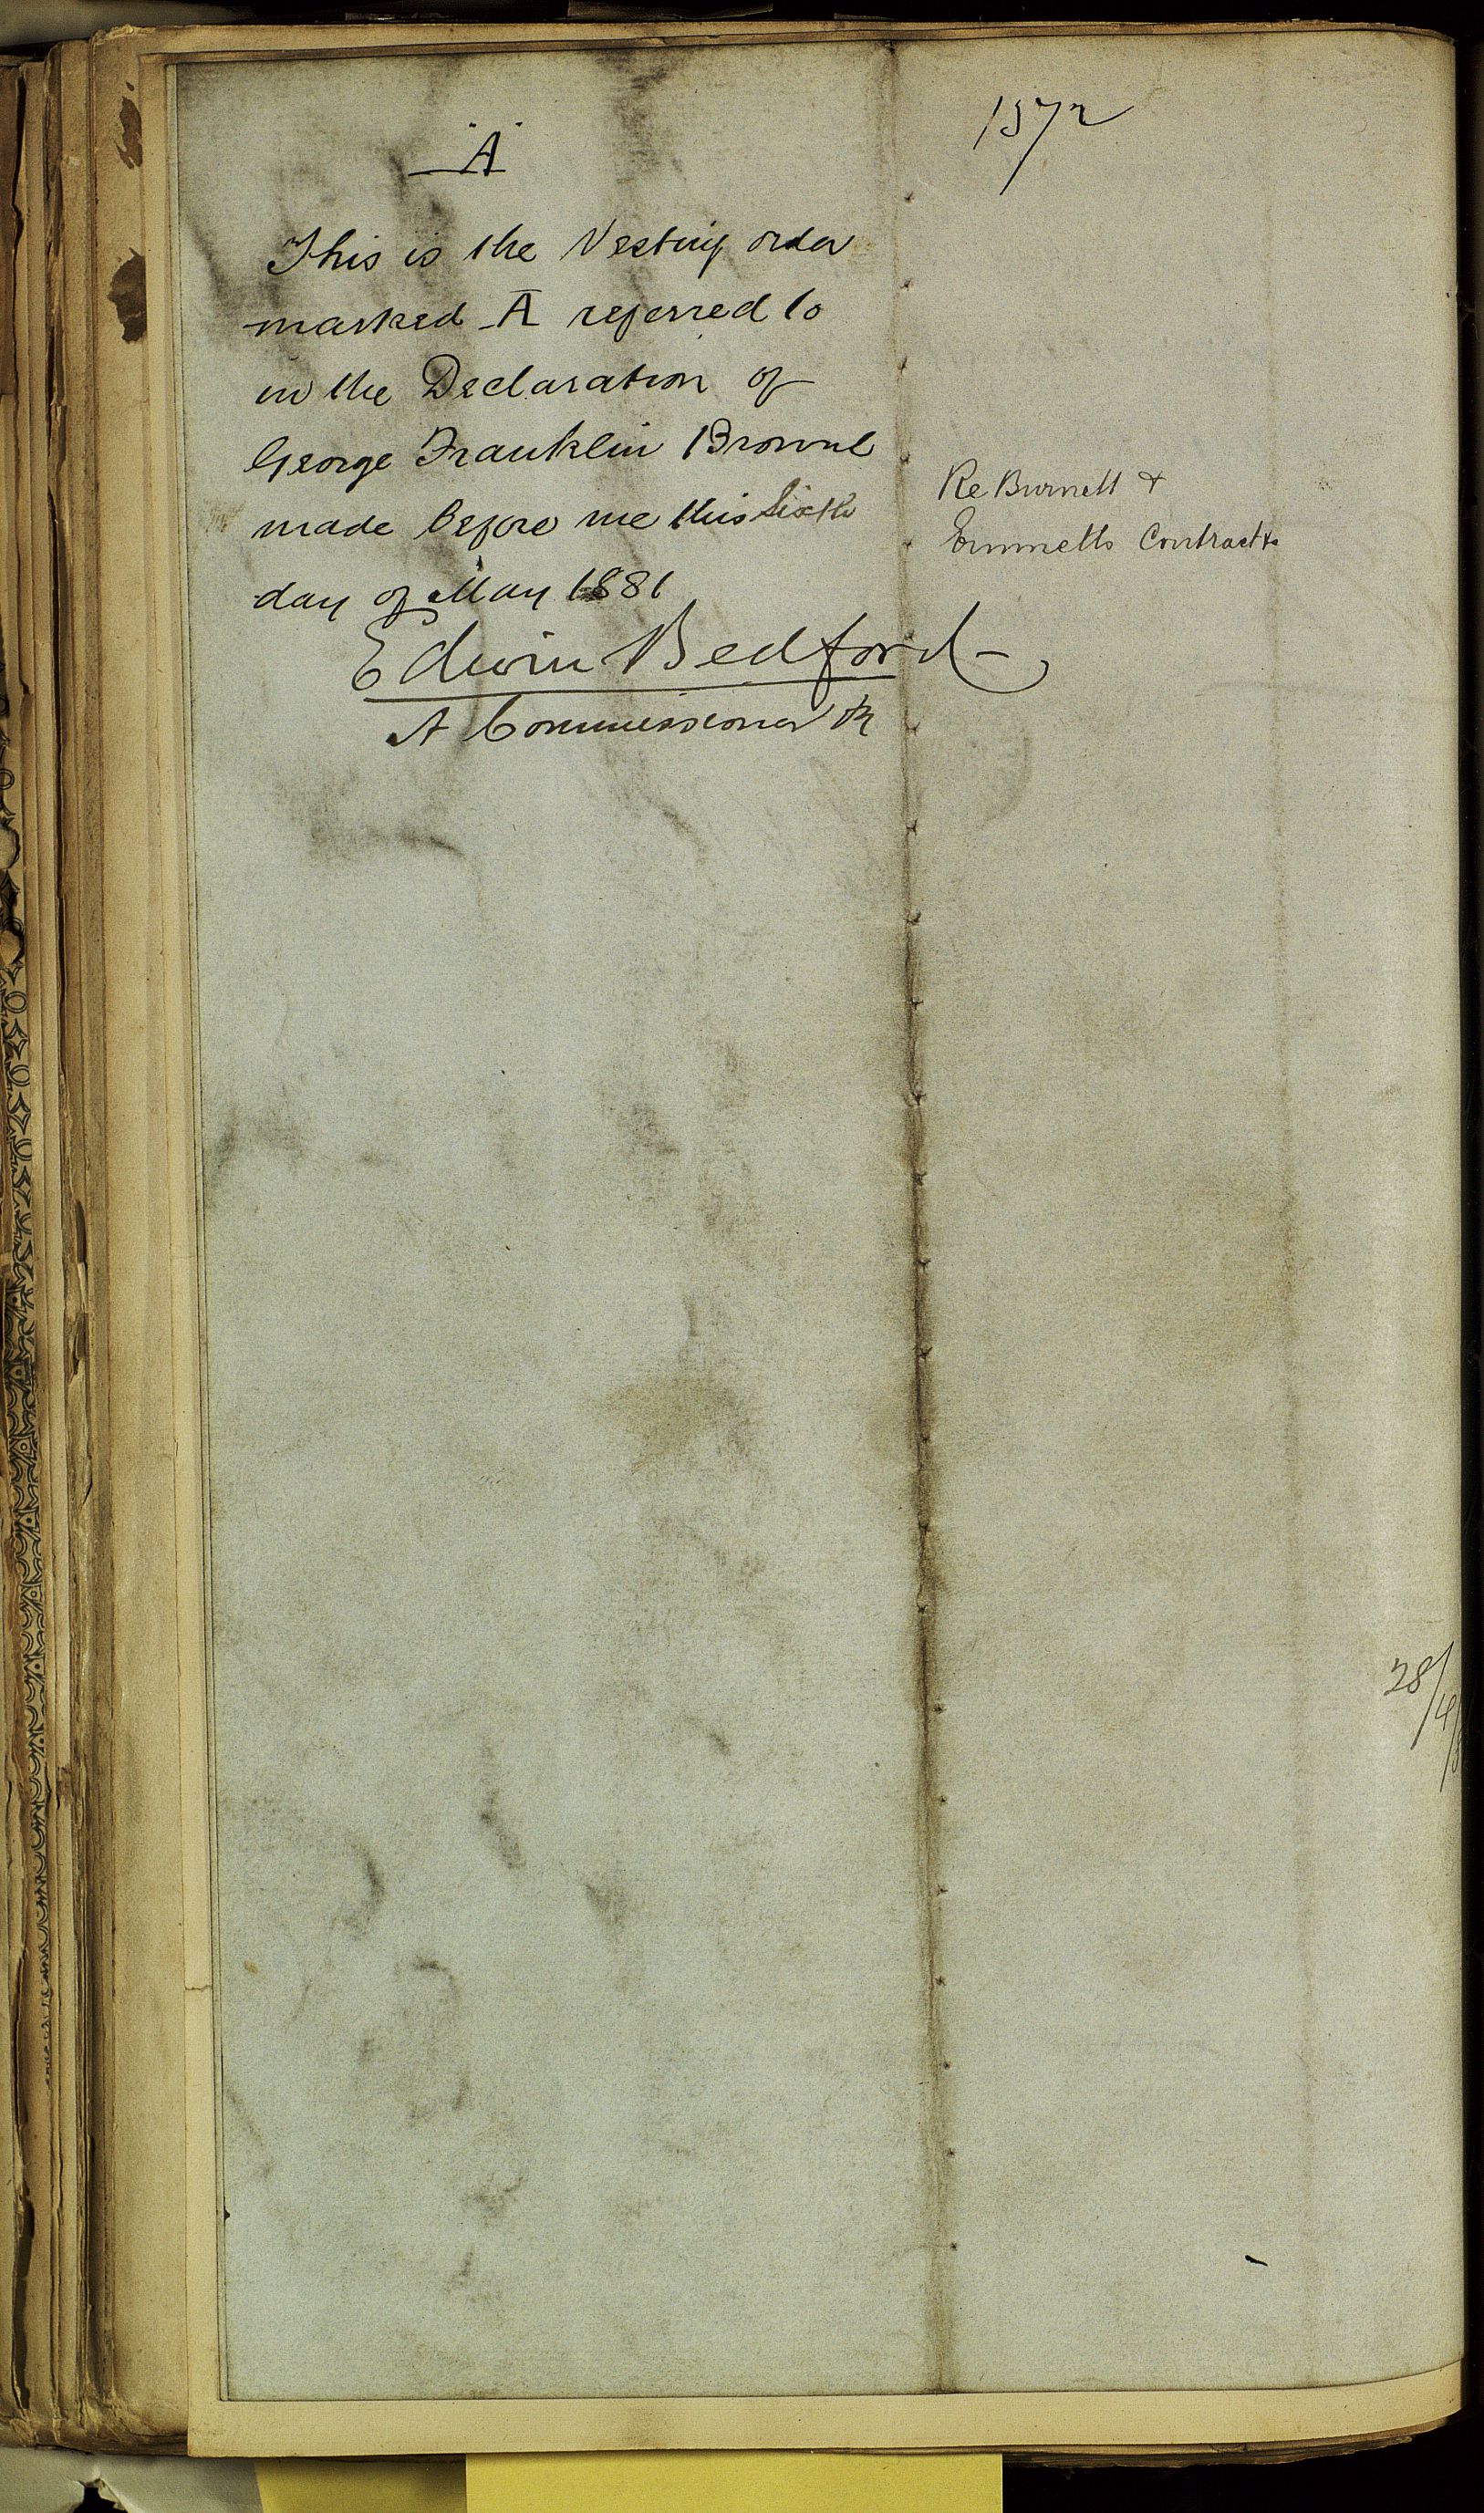 "A"
This is the Vesting order
marked A referred to
in the Declaration of
George Franklin Browne
made before me this Sixth
day of May 1881
Edwin Bedford
A Commissioner &c
1572
Re Burnett &
Emmetts Contract
28/4/